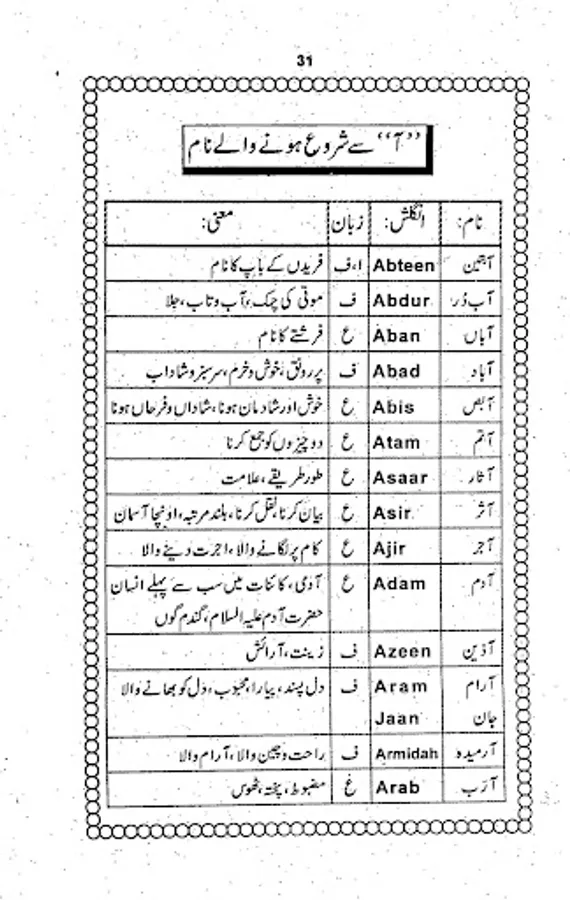 31
”آ“ سے شروع ہونے والے نام
نام: انگلش: زبان معنی:
آبتین Abteen ا،ف فریدں کے باپ کا نام
آب دُر Abdur ف موتی کی چمک، آب و تاب، جلا
آباں Aban ع فرشتے کا نام
آباد Abad ف پر رونق، خوش و خرم، سرسبز و شاداب
آبص Abis ع خوش اور شادمان ہونا، شاداں و فرحاں ہونا
آتم Atam ع دو چیزوں کو جمع کرنا
آثار Asaar ع طور طریقے، علامت
آثر Asir ع بیان کرنا، نقل کرنا، بلند مرتبہ، اونچا آسمان
آجر Ajir ع کام پر لگانے والا، اجرت دینے والا
آدم Adam ع آدمی، کائنات میں سب سے پہلے انسان
حضرت آدم علیہ السلام، گندم گوں
آذین Azeen ف زینت، آرائش
آرام Aram ف دل پسند، پیارا، محبوب، دل کو بھانے والا
جان Jaan
آرمیدہ Armidah ف راحت و چین والا، آرام والا
آرَب Arab ع مضبوط، پختہ، ٹھوس